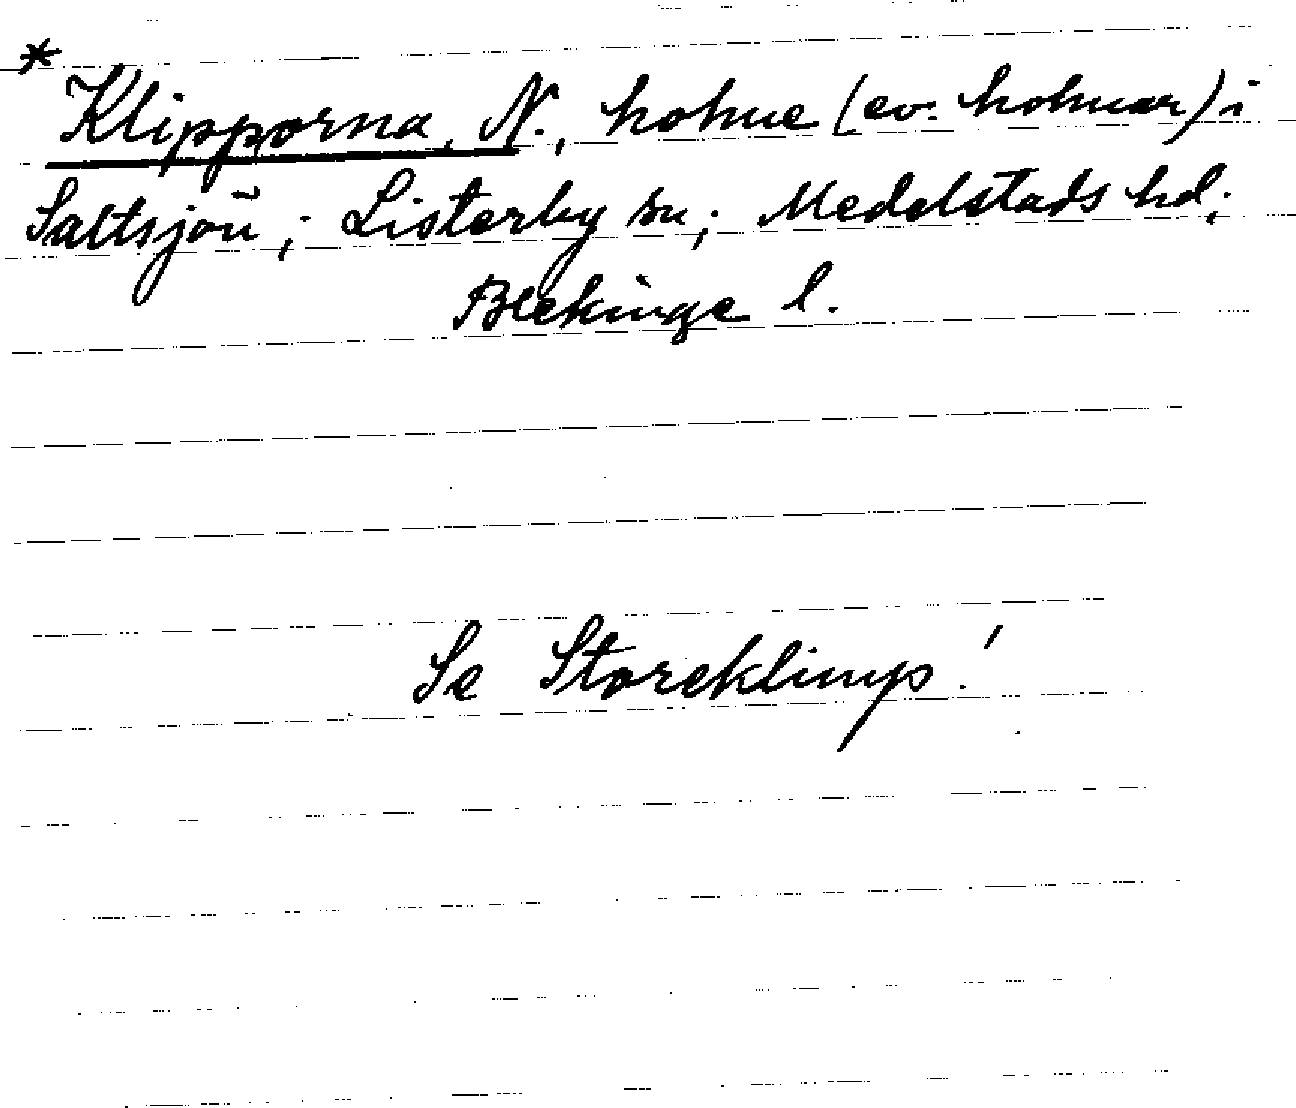 * Klipporna, N., holme (ev. holmar) i
Saltsjön; Listerby sn; Medelstads hd;
Blekinge l.
Se Storeklimp!